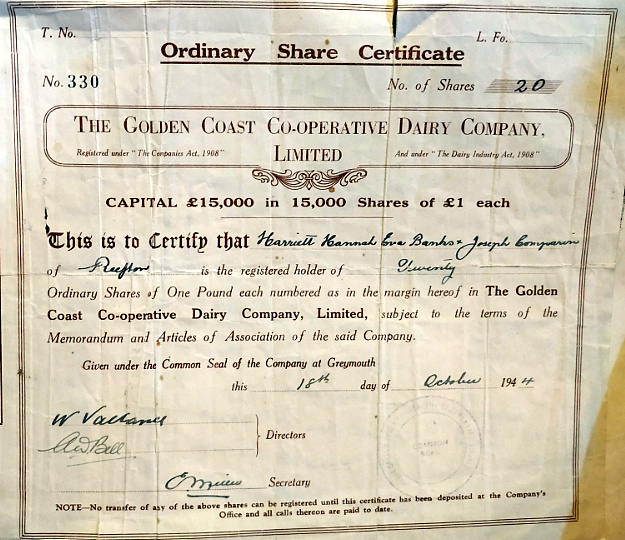 T. No.
L. Fo.
Ordinary Share Certificate
No. 330
No. of Shares 20
THE GOLDEN COAST CO-OPERATIVE DAIRY COMPANY,
Registered under "The Companies Act, 1908"
LIMITED
And under "The Dairy Industry Act, 1908"
CAPITAL £15,000 in 15,000 Shares of £1 each
This is to Certify that Harriett Hannah Eva Banks & Joseph Comparin
of Reefton is the registered holder of Twenty
Ordinary Shares of One Pound each numbered as in the margin hereof in The Golden
Coast Co-operative Dairy Company, Limited, subject to the terms of the
Memorandum and Articles of Association of the said Company.
Given under the Common Seal of the Company at Greymouth
this 18th day of October 1944
W
Bell
Directors
Secretary
NOTE—No transfer of any of the above shares can be registered until this certificate has been deposited at the Company's
Office and all calls thereon are paid to date.